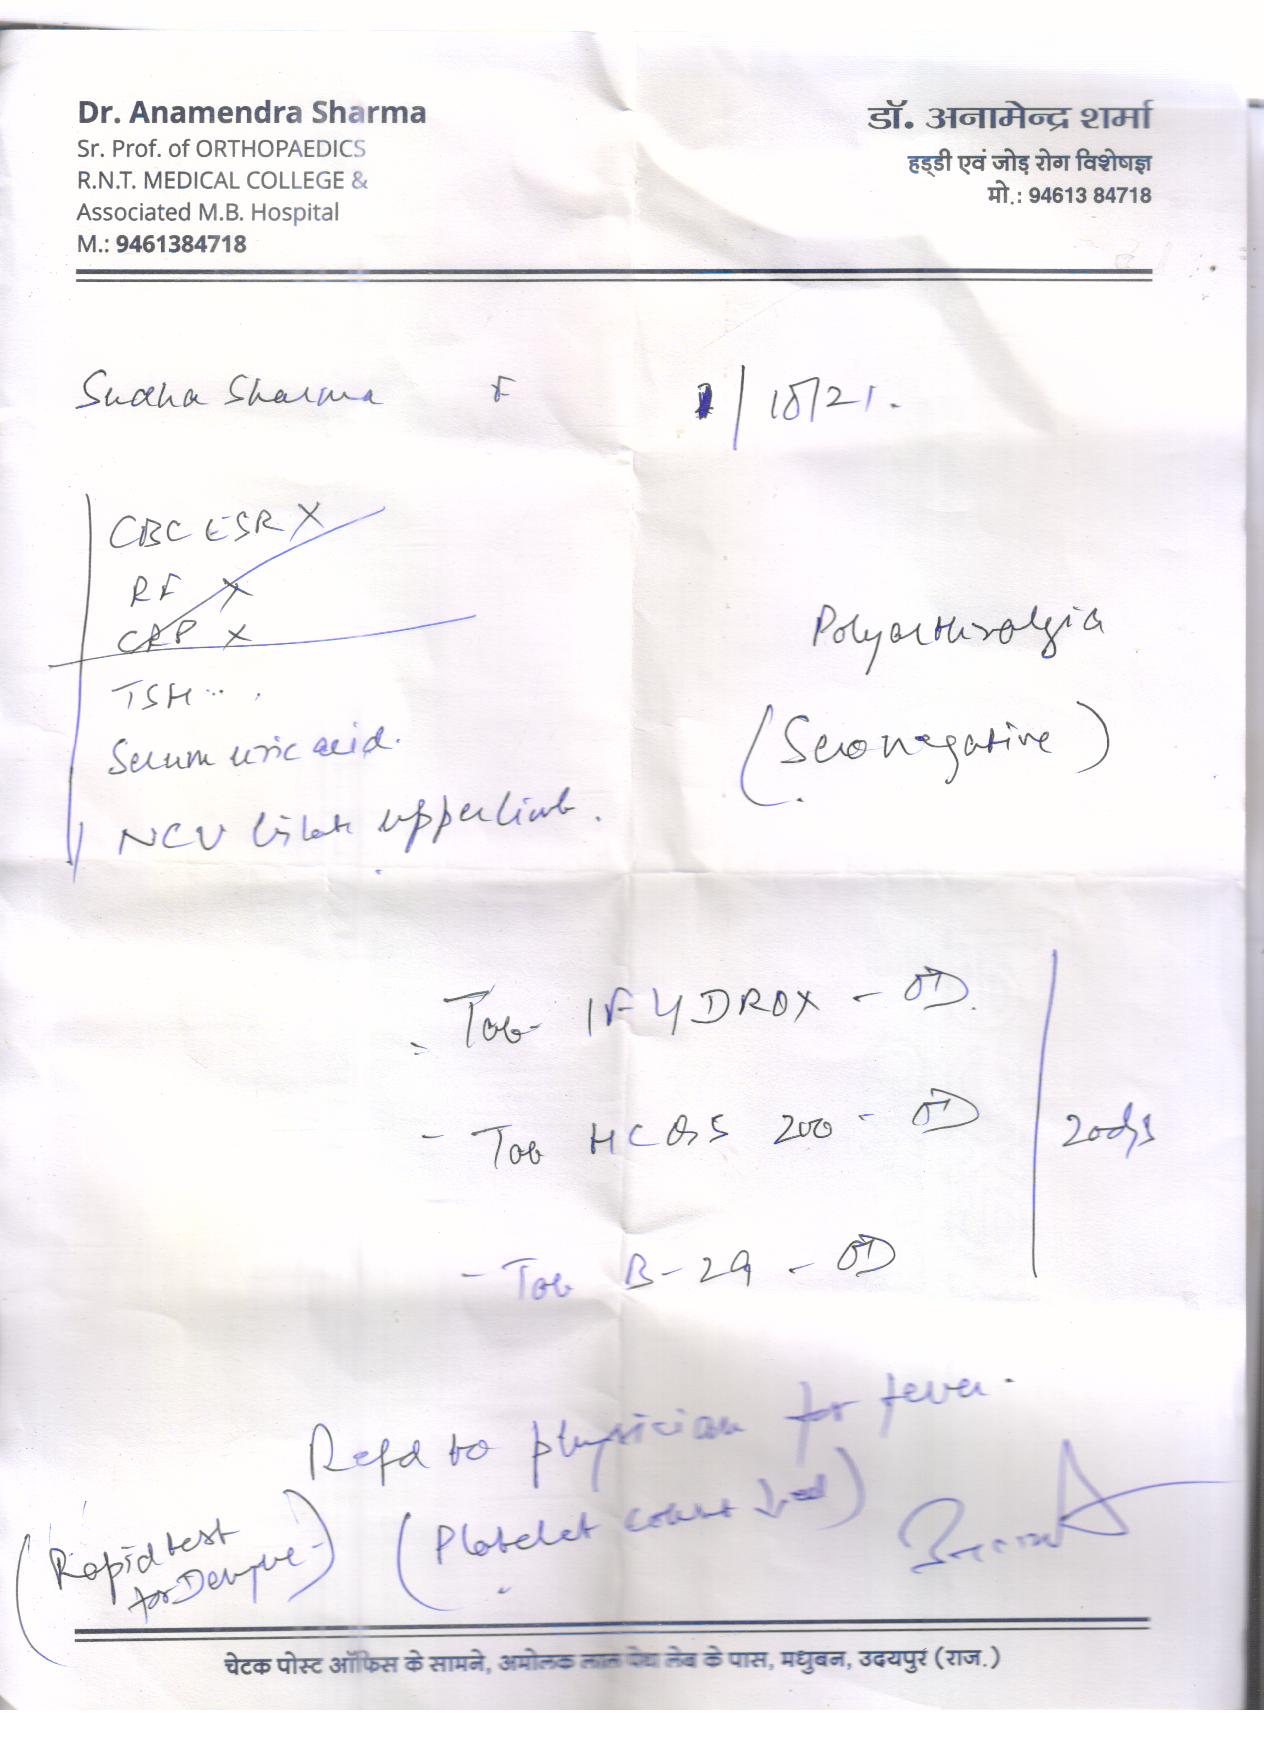 Dr. Anamendra Sharma
Sr. Prof. of ORTHOPAEDICS
R.N.T. MEDICAL COLLEGE &
Associated M.B. Hospital
M.: 9461384718
डॉ. अनामेन्द्र शर्मा
हड्डी एवं जोड़ रोग विशेषज्ञ
मो.: 94613 84718
Sudha Sharma F /10/21.
CBC ESR X
RF X
CRP X
TSH
Serum uric acid.
NCV upper limb.
Polyarthralgia
(Seronegative)
- Tab HCQS 200 - OD
20 dys
- Tab B-29 - OD
Refd to physician for fever.
(Platelet count )
(Rapid test
for Dengue)
चेटक पोस्ट ऑफिस के सामने, अमोलक लाल पेथ लेब के पास, मधुबन, उदयपुर (राज.)